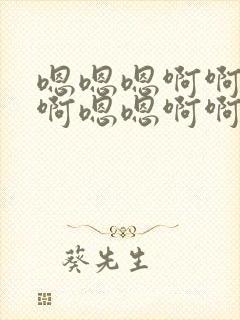 嗯嗯嗯啊啊
啊嗯嗯啊啊
葵先生